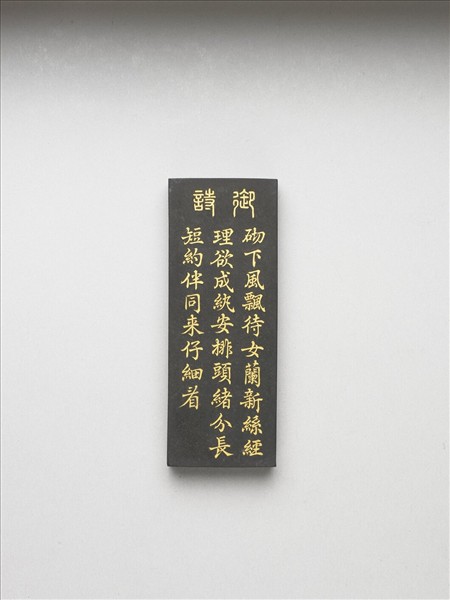 御詩
砌下風飄待女蘭新絲經
理欲成紈安排頭緒分長
短約伴同来仔細看